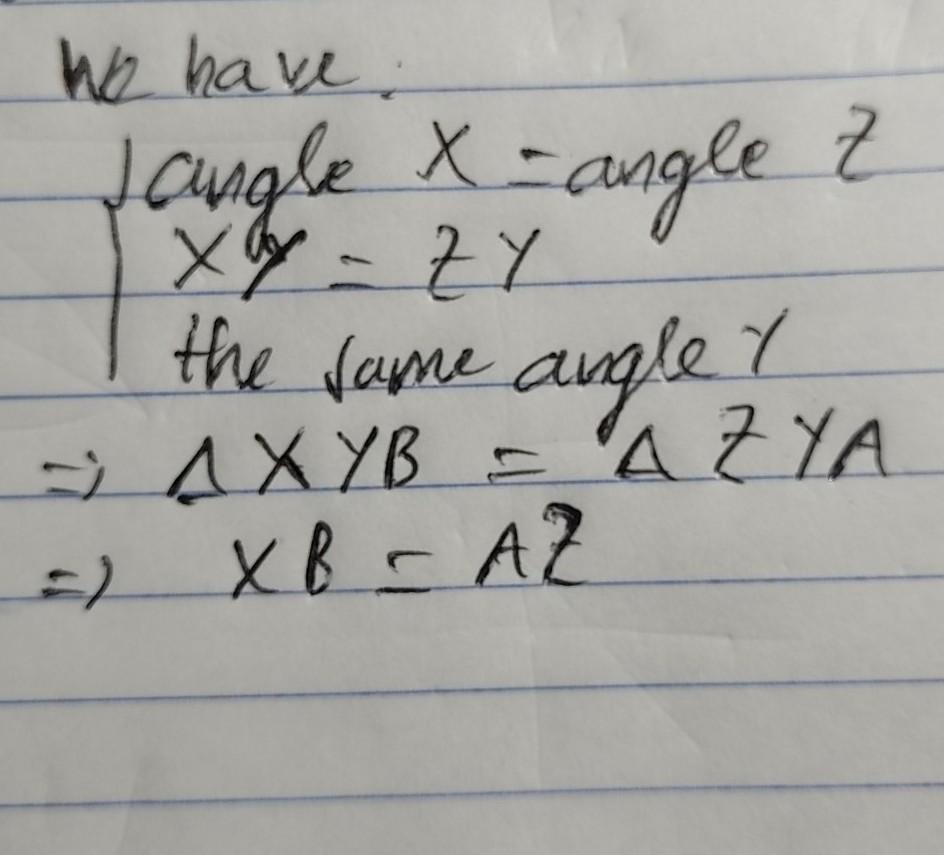 We have:
angle X = angle Z
XY = ZY
the same angle Y
=> Δ XYB = Δ ZYA
=> XB = AZ